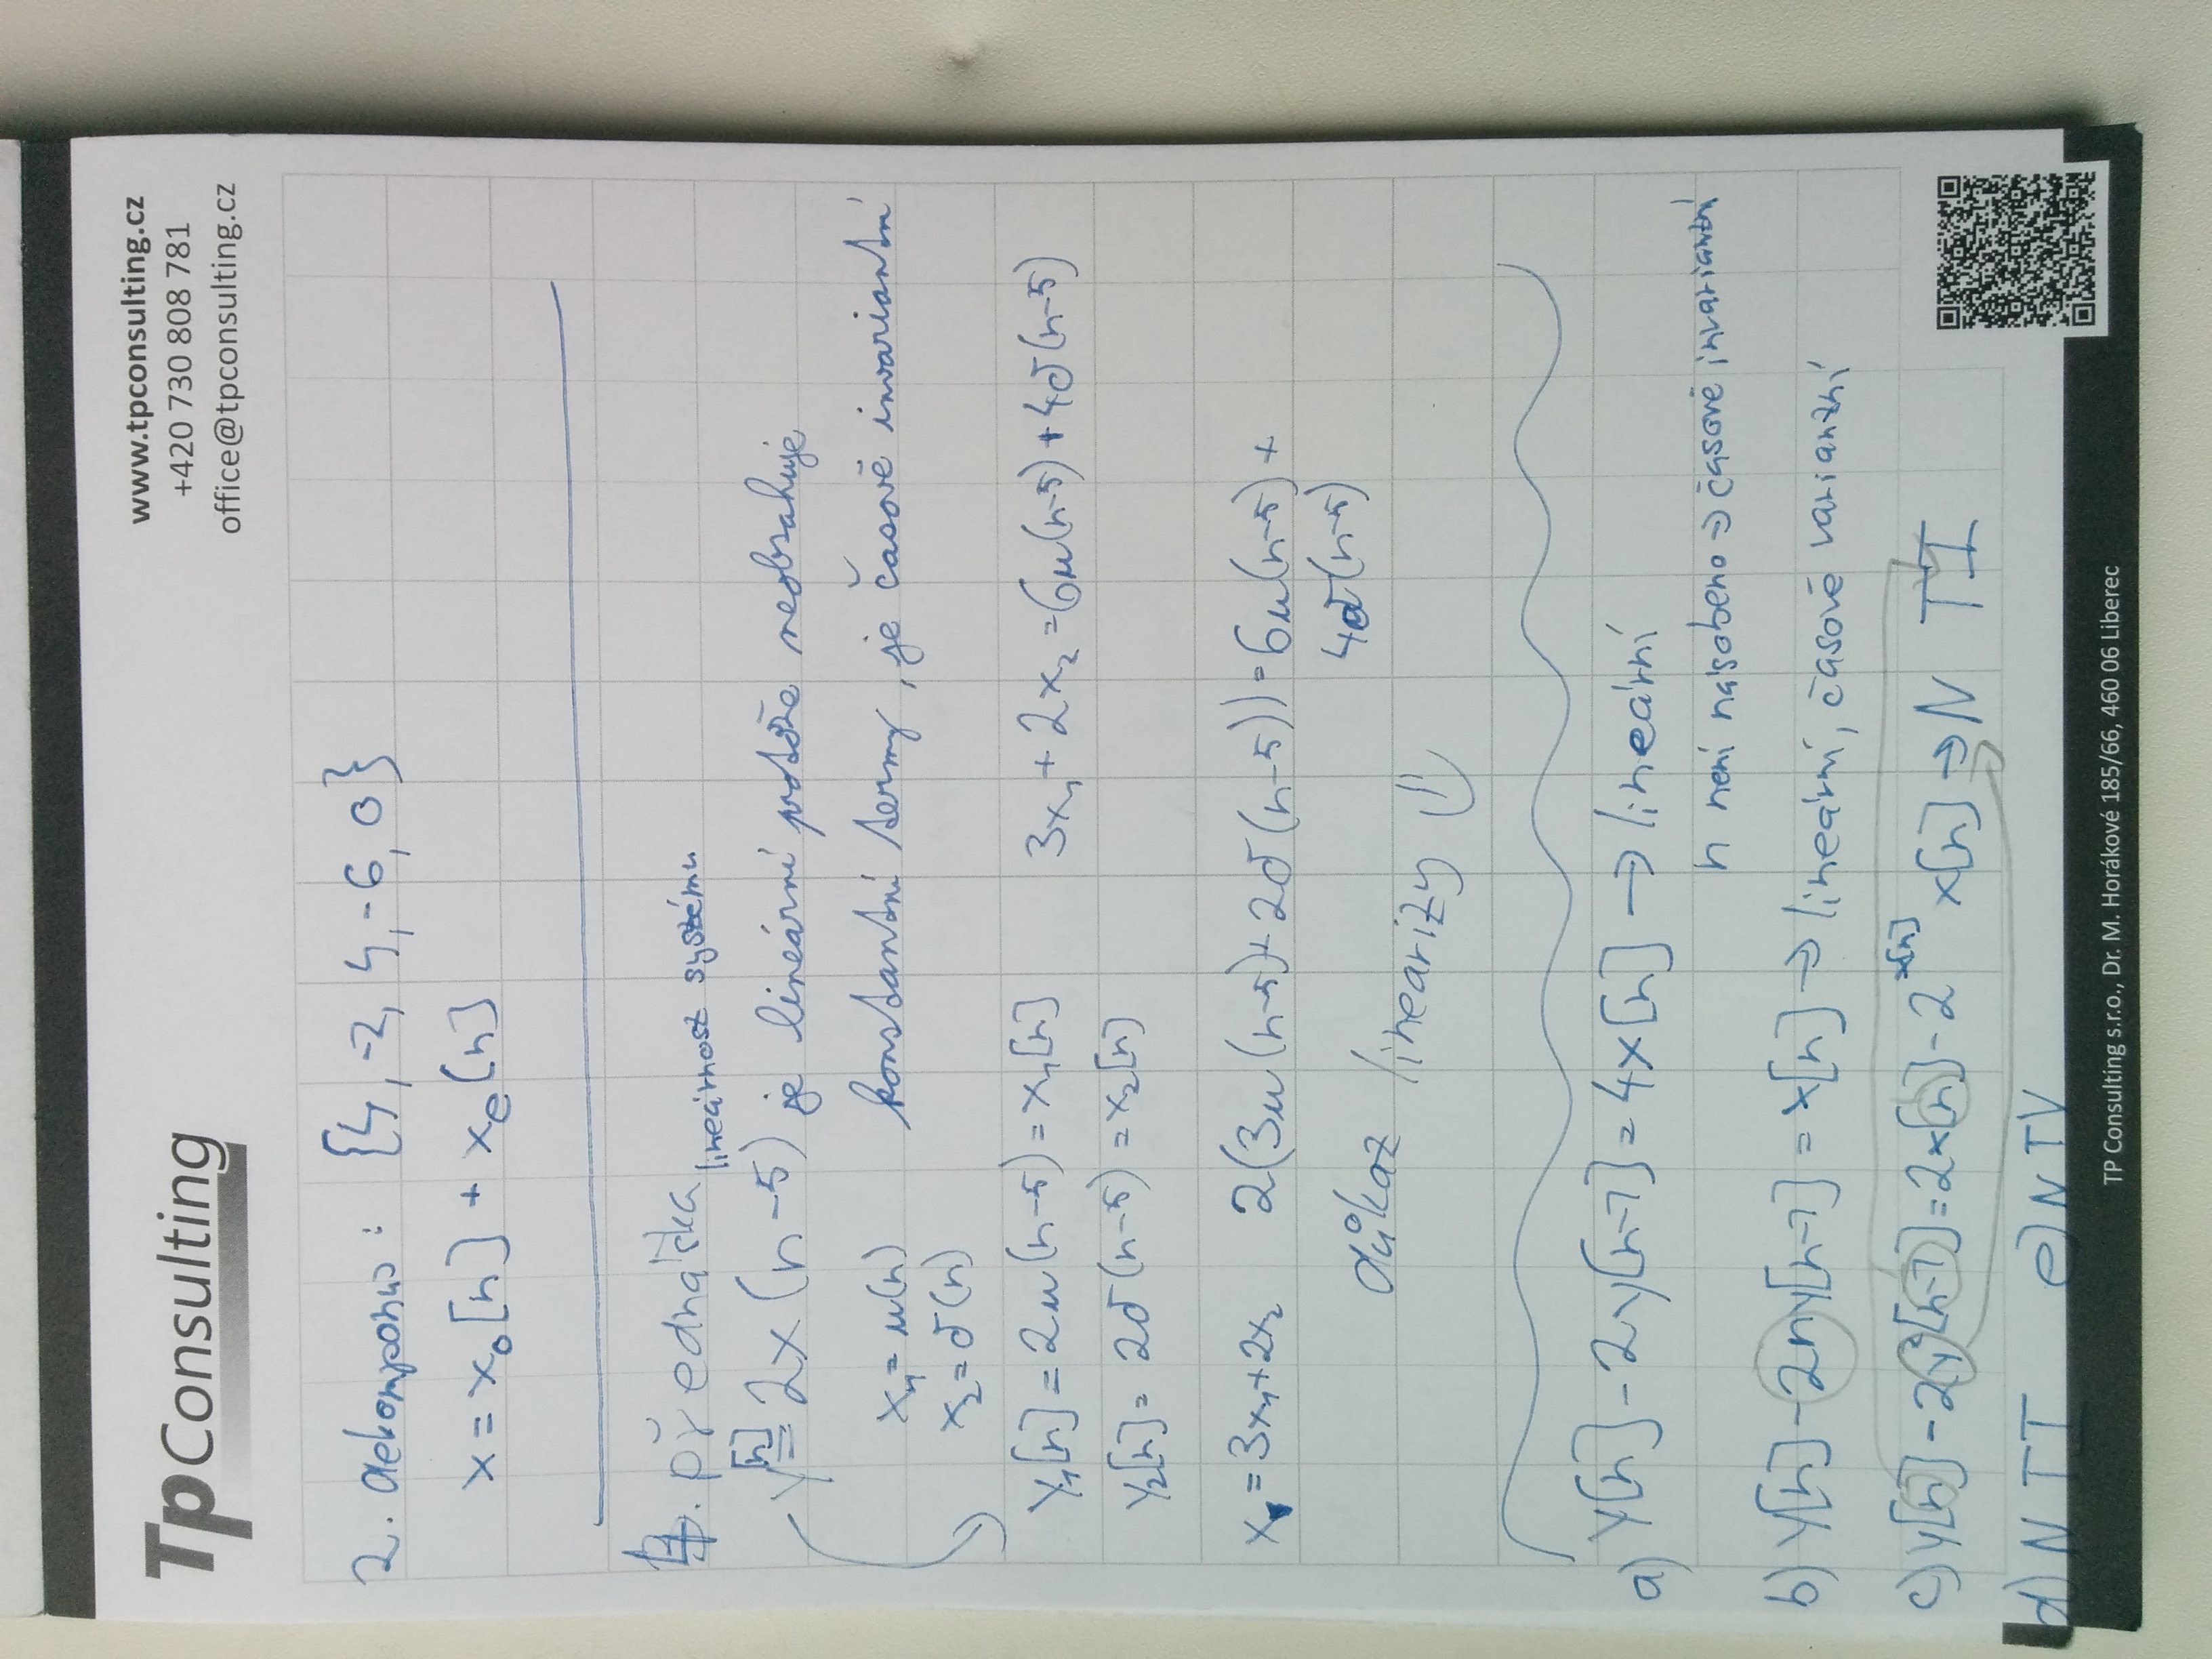 TpConsulting
www.tpconsulting.cz
+420 730 808 781
office@tpconsulting.cz
2. dekomponuj: {4,-2, 4,-6, 0}
x = x₀[n] + xₑ[n]
přednáška lineárnost systému
y[n] = 2x(n-5) je lineární protože neobsahuje
konstantní termy, je časově invariantní
x₁=u(n)
x₂=δ(n)
y₁[n] = 2u(n-5) = x₁[n] 3x₁+2x₂=6u(n-5)+4δ(n-5)
y₂[n] = 2δ(n-5) = x₂[n]
x = 3x₁+2x₂ 2(3u(n-5)+2δ(n-5))=6u(n-5)+
4δ(n-5)
důkaz linearity
a) y[n]-2y[n-1]=4x[n] → lineární
n není násobeno ⇒ časově invariantní
b) y[n]-2ny[n-1]=x[n] → lineární, časově variantní
c) y[n]-2y²[n-1]=2x[n]-2ˣ[ⁿ] x[n] → N TI
d) N TI e) N TV
TP Consulting s.r.o., Dr. M. Horákové 185/66, 460 06 Liberec